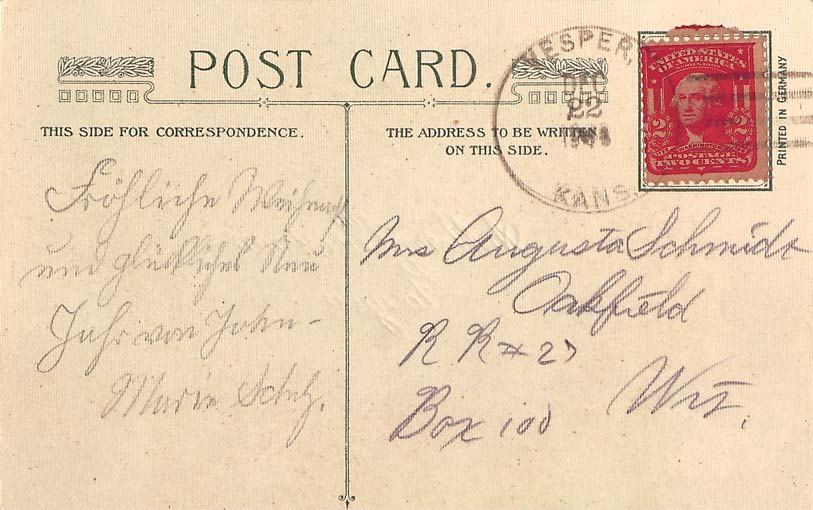 POST CARD.
THIS SIDE FOR CORRESPONDENCE.
Fröhliche Weihnacht
und glückliches Neu
Jahr von John-
Marie
THE ADDRESS TO BE WRITTEN
ON THIS SIDE.
VESPER,
DEC
22
KANS.
UNITED STATES
OF AMERICA
2 2
WASHINGTON
POSTAGE
TWO CENTS
PRINTED IN GERMANY
Mrs Augusta Schmidt
Oakfield
R R # 27
Box 100 Wis.